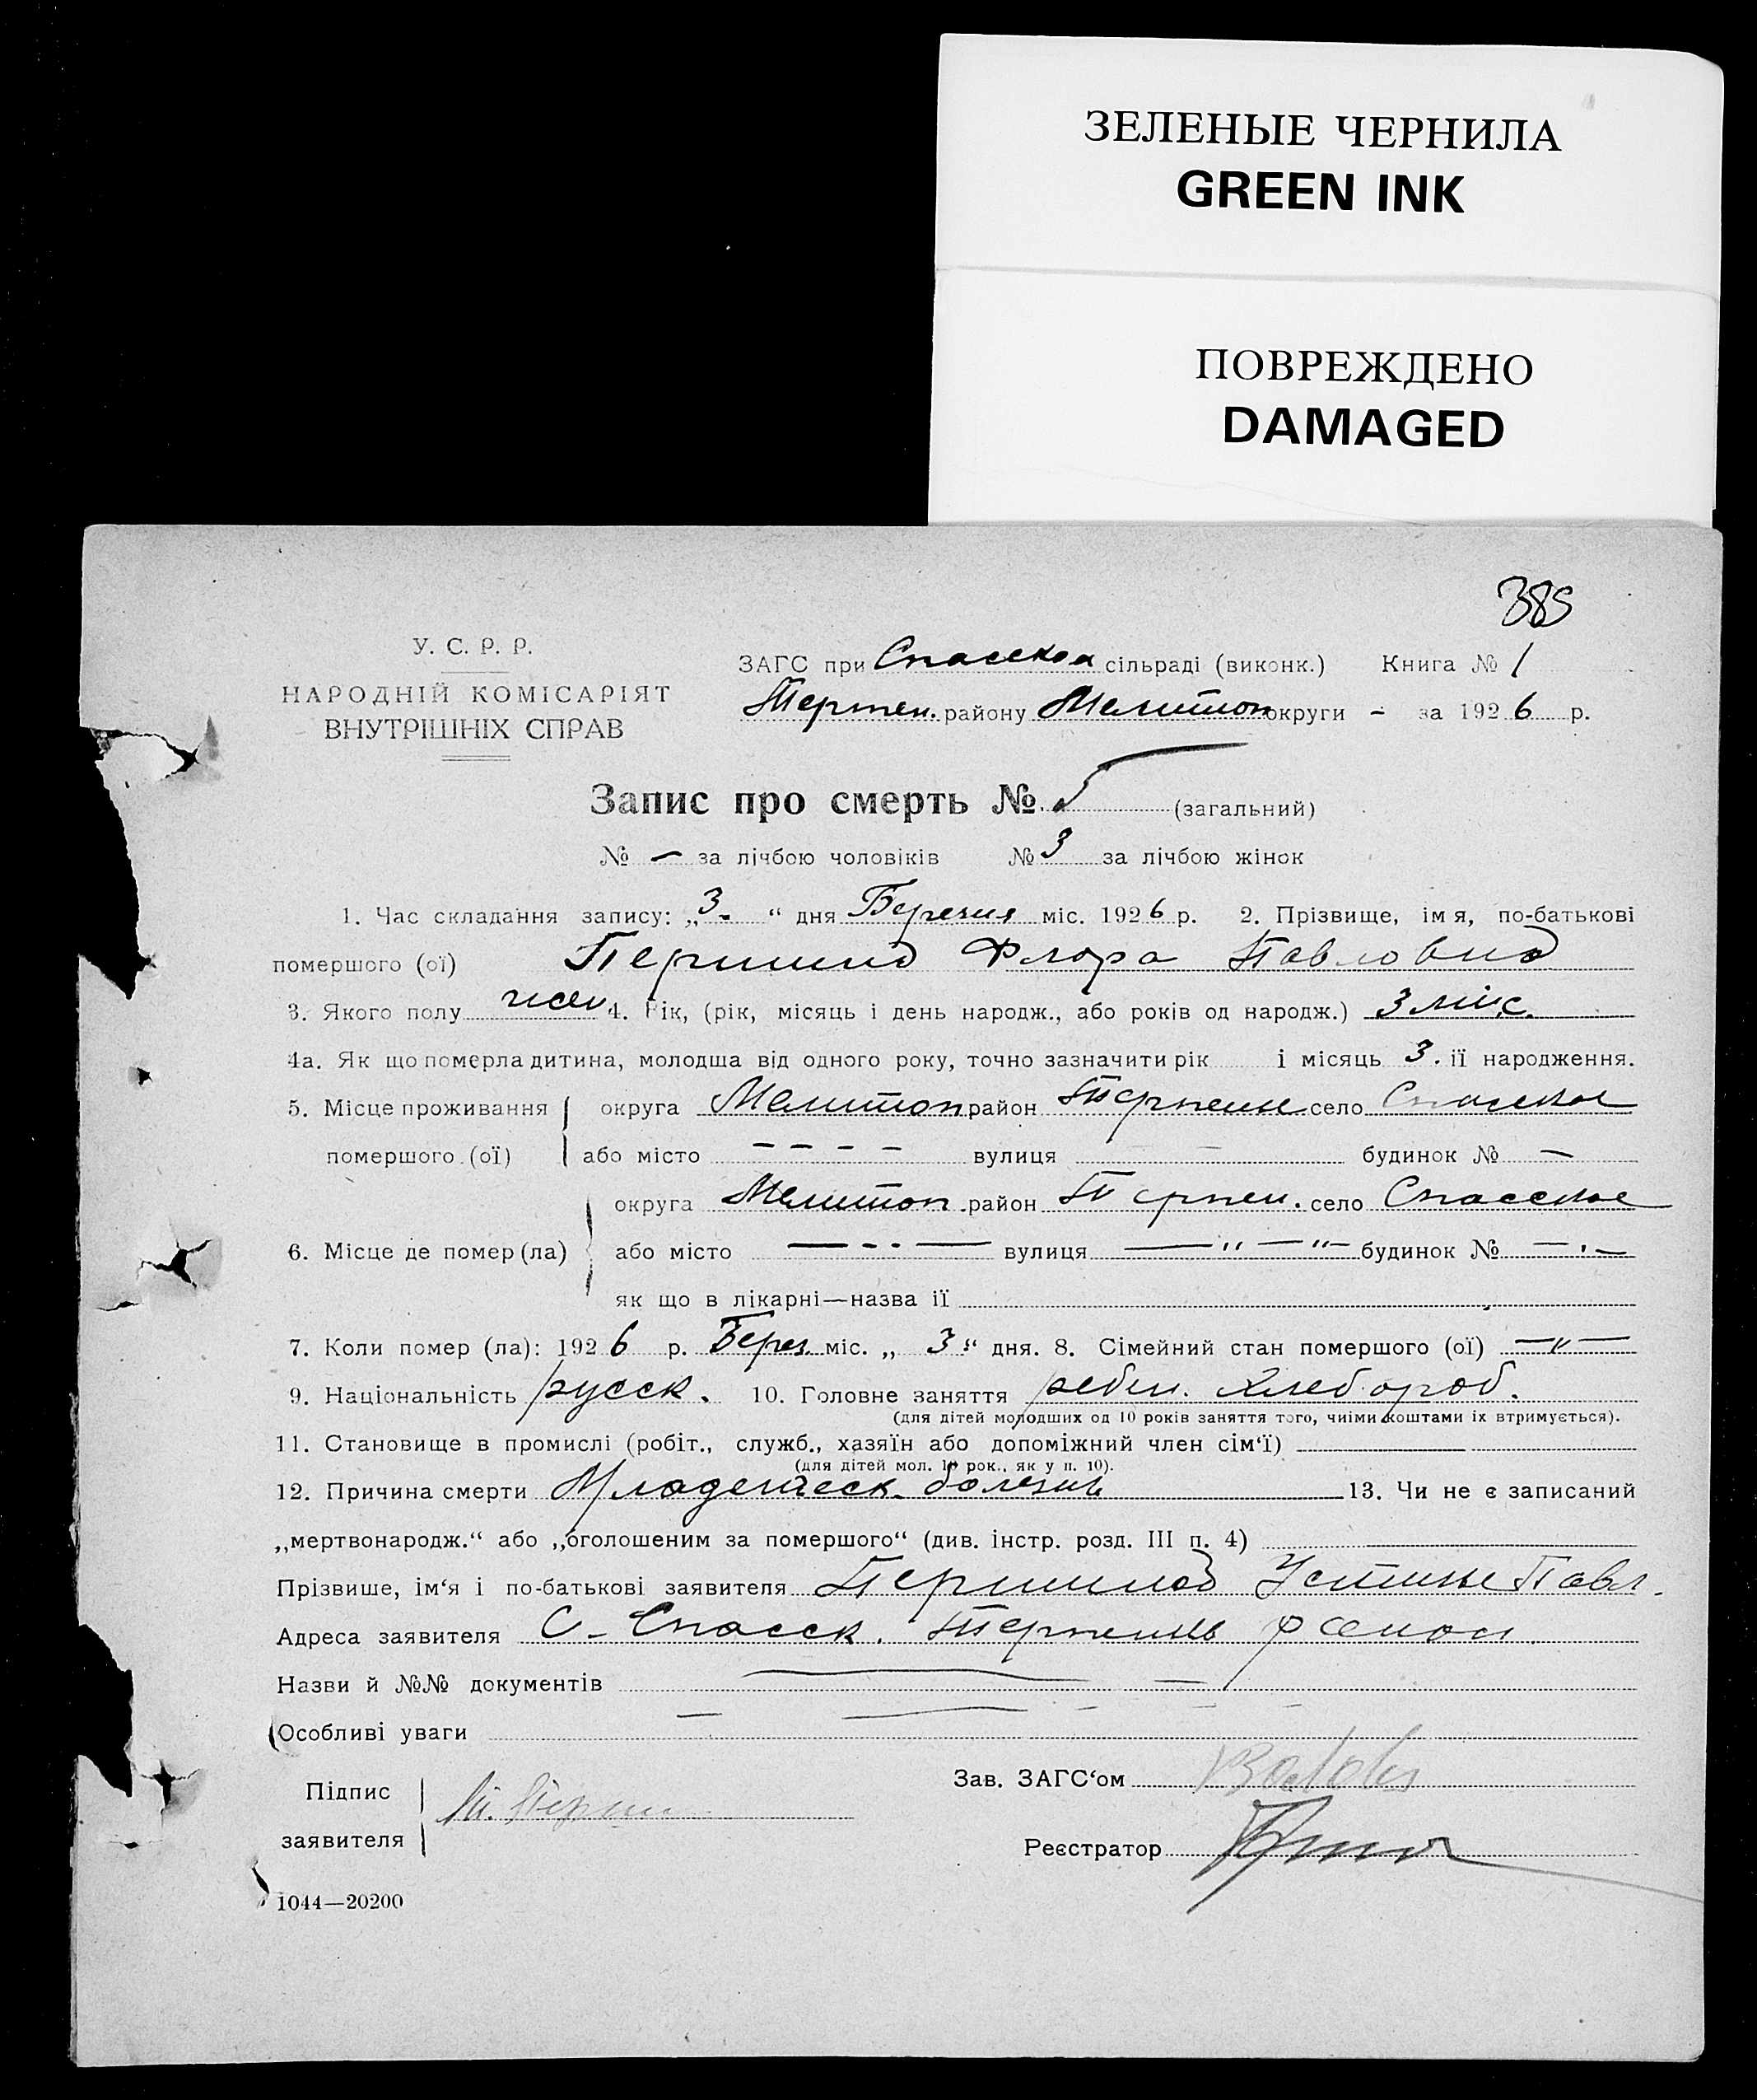 ЗЕЛЕНЫЕ ЧЕРНИЛА
GREEN INK
ПОВРЕЖДЕНО
DAMAGED
385
У. С. Р. Р.
НАРОДНІЙ КОМІСАРІЯТ
ВНУТРІШНІХ СПРАВ
ЗАГС при Спасской сільраді (виконк.) Книга № 1
Терпен. району Мелитоп округи - за 1926 р.
Запис про смерть № 5 (загальний)
№ — за лічбою чоловіків № 3 за лічбою жінок
1. Час складання запису: „3-“ дня Березня міс. 1926 р. 2. Прізвище, імя, по-батькові
помершого (ої) Першина Флора Павловна
3. Якого полу жен 4. Рік, (рік, місяць і день народж., або років од народж.) 3 міс.
4а. Як що померла дитина, молодша від одного року, точно зазначити рік і місяць 3. її народження.
5. Місце проживання округа Мелитоп район Терпен село Спасское
помершого (ої) або місто - - - - вулиця — будинок № —
округа Мелитоп. район Терпен. село Спасское
6. Місце де помер (ла) або місто — - - — вулиця — " — " — будинок № — . —
як що в лікарні—назва її
7. Коли помер (ла): 1926 р. Берез. міс. „ 3 “ дня. 8. Сімейний стан помершого (ої) — " —
9. Національність русск. 10. Головне заняття ребен. хлебороб.
(для дітей молодших од 10 років заняття того, чиїми коштами їх втримується).
11. Становище в промислі (робіт., служб., хазяїн або допоміжний член сім‘ї)
(для дітей мол. 10 рок., як у п. 10).
12. Причина смерти Младенческ. болезнь 13. Чи не є записаний
„мертвонародж.“ або „оголошеним за помершого“ (див. інстр. розд. III п. 4)
Прізвише, ім‘я і по-батькові заявителя Першиной Устинье Павл.
Адреса заявителя С- Спасск. Терпеньев района
Назви й №№ документів
Особливі уваги
Підпис
заявителя
Зав. ЗАГС‘ом
Реєстратор
1044—20200